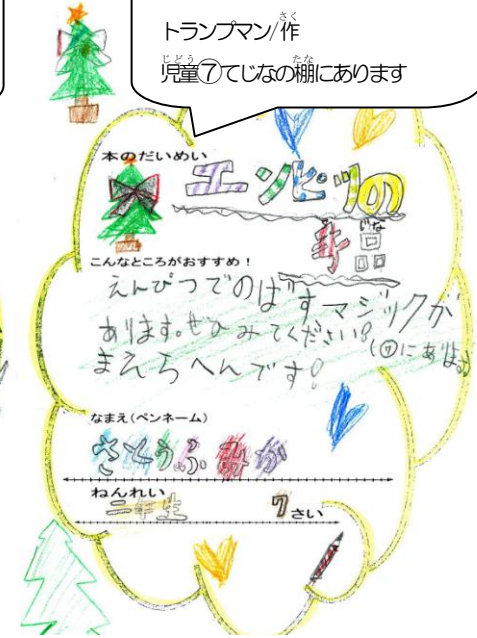 トランプマン/作
児童⑦てじなの棚にあります
本のだいめい
エンピツの
手品
こんなところがおすすめ！
えんぴつでのばすマジックが
あります。ぜひみてください!
まえらへんです!
なまえ(ペンネーム)
さとうふみか
ねんれい
二年生 7さい